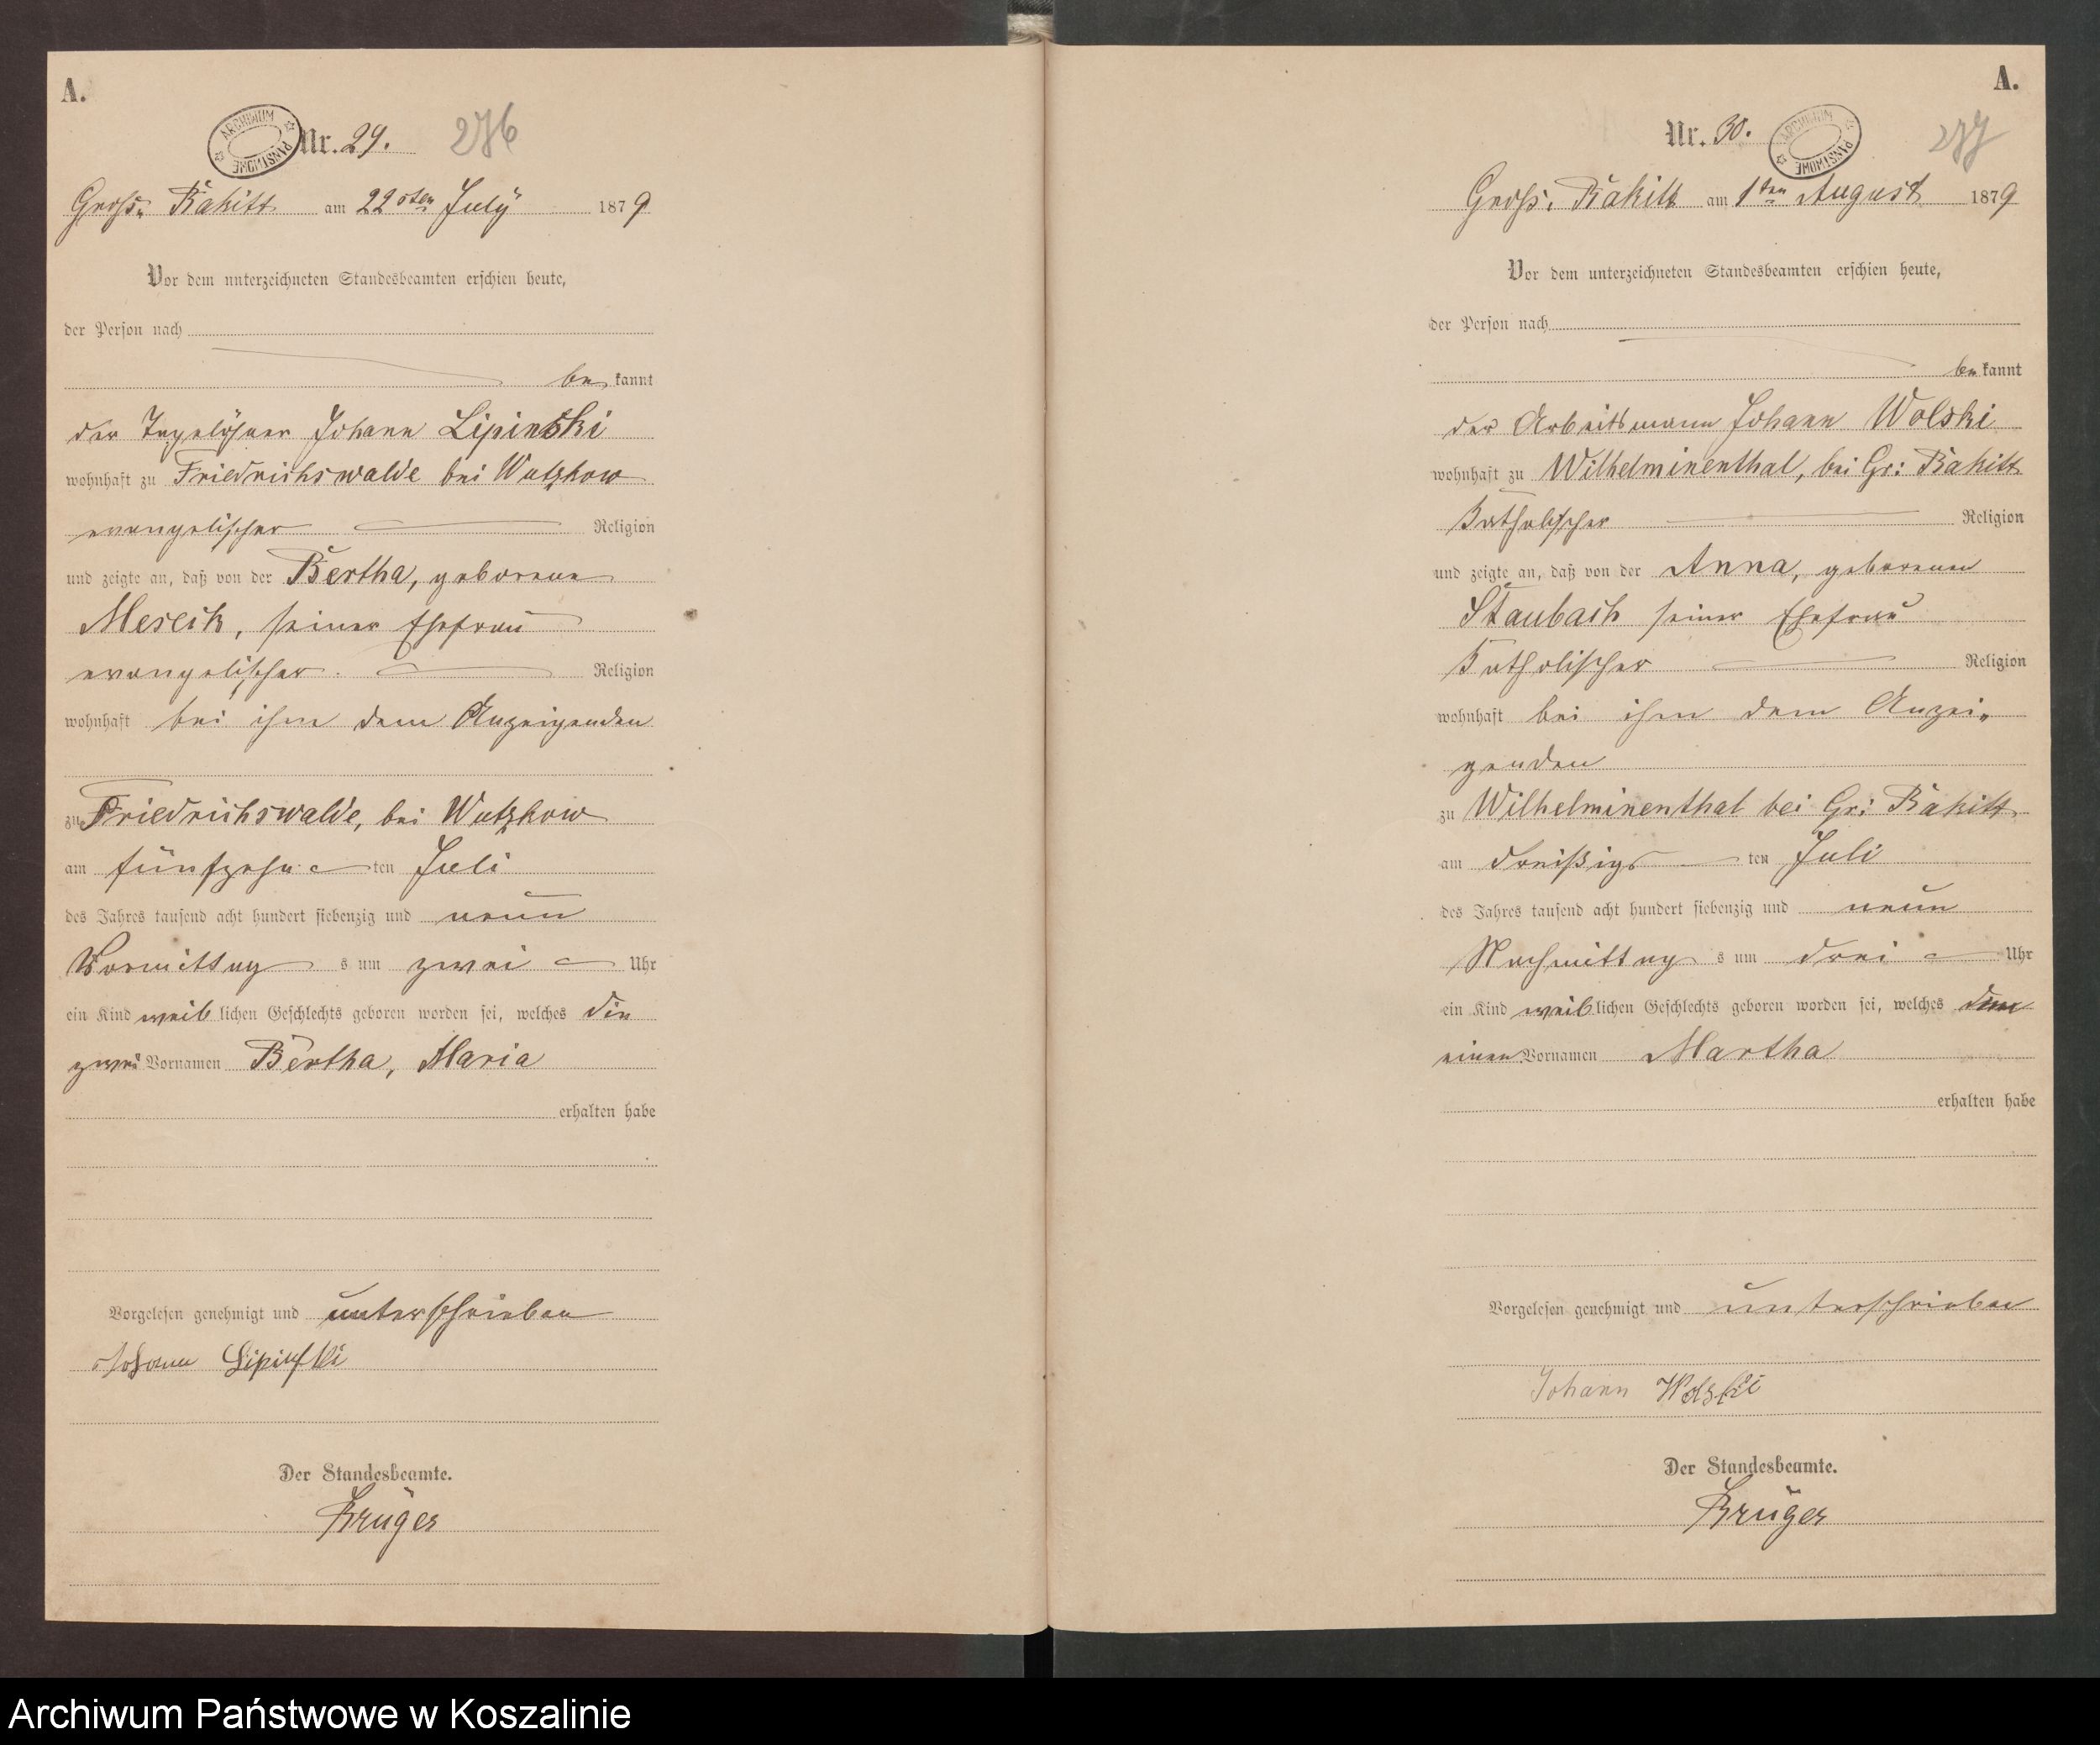 A.
ARCHIWUM PAŃSTWOWE
Nr. 29. 276
Gross. Rakitt am 22sten July 1879
Vor dem unterzeichneten Standesbeamten erschien heute,
der Person nach
be kannt
der Tagelöhner Johann Lipinski
wohnhaft zu Friedrichswalde bei Wutzkow
evangelischer Religion
und zeigte an, daß von der Bertha, geborene
Meseck, seiner Ehefrau
evangelischer Religion
wohnhaft bei ihm dem Anzeigenden
zu Friedrichswalde, bei Wutzkow
am fünfzehn ten Juli
des Jahres tausend acht hundert siebenzig und neun
Vormittag s um zwei Uhr
ein Kind weib lichen Geschlechts geboren worden sei, welches die
zwei Vornamen Bertha, Maria
erhalten habe
Vorgelesen genehmigt und unterschrieben
Johann Lipinski
Der Standesbeamte.
Krüger
A.
Nr. 30. 277
ARCHIWUM PAŃSTWOWE
Gross. Rakitt am 1ten August 1879
Vor dem unterzeichneten Standesbeamten erschien heute,
der Person nach
be kannt
der Arbeitsmann Johann Wolski
wohnhaft zu Wilhelminenthal, bei Gr: Rakitt
Katholischer Religion
und zeigte an, daß von der Anna, geborenen
Staubach seiner Ehefrau
Katholischer Religion
wohnhaft bei ihm dem Anzei„
genden
zu Wilhelminenthal bei Gr: Rakitt
am dreißigs ten Juli
des Jahres tausend acht hundert siebenzig und neun
Nachmittag s um drei Uhr
ein Kind weib lichen Geschlechts geboren worden sei, welches den
einen Vornamen Martha
erhalten habe
Vorgelesen genehmigt und unterschrieben
Johann Wolski
Der Standesbeamte.
Krüger
Archiwum Państwowe w Koszalinie